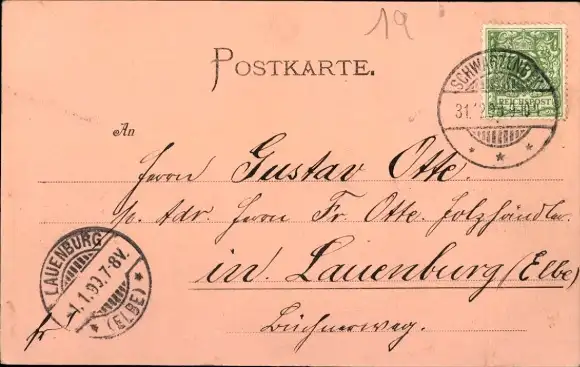 19
POSTKARTE.
SCHWARZENBEK
31.12.98.4-5N.
REICHSPOST
An
Herrn Gustav Otte.
p. Adr. Herrn Fr. Otte. Holzhändler
in Lauenburg (Elbe)
Büchnerweg.
LAUENBURG
1.1.99.7-8V.
(ELBE)
fr.